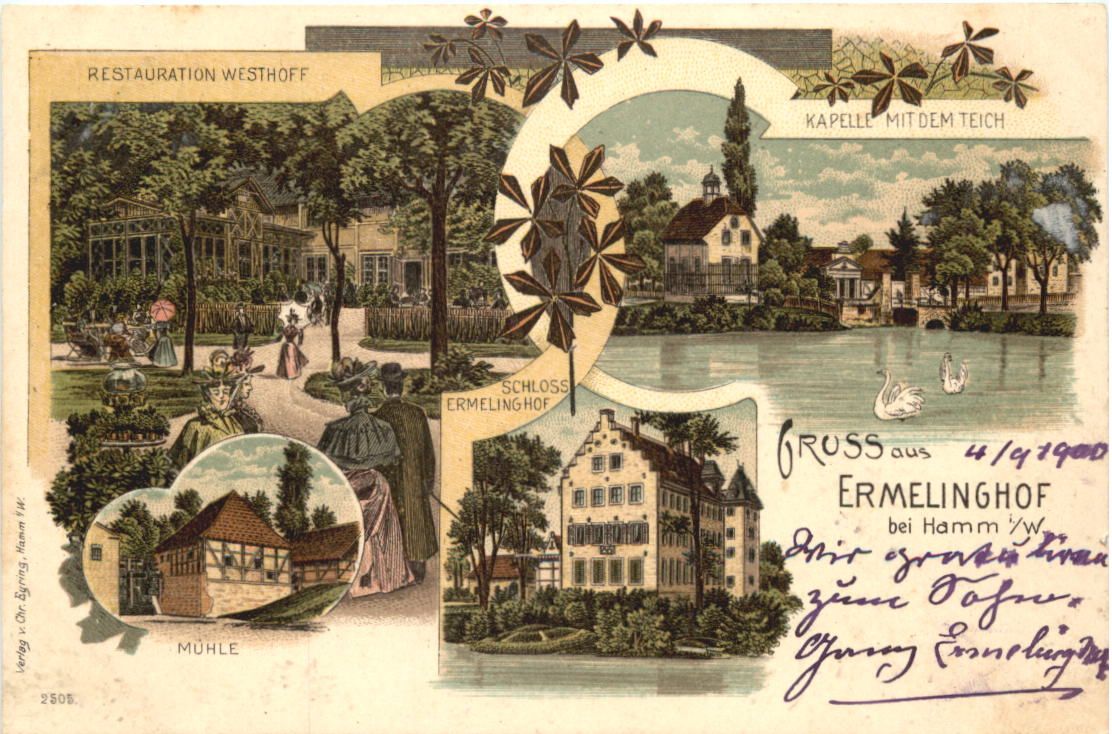 RESTAURATION WESTHOFF
KAPELLE MIT DEM TEICH
SCHLOSS
ERMELINGHOF
GRUSS aus 4/9 1900
ERMELINGHOF
bei Hamm i/W
Wir gratulieren
zum Sohne.
Ganz Ermelinghof
MÜHLE
Verlag v. Chr. Eyring, Hamm i/W.
2505.